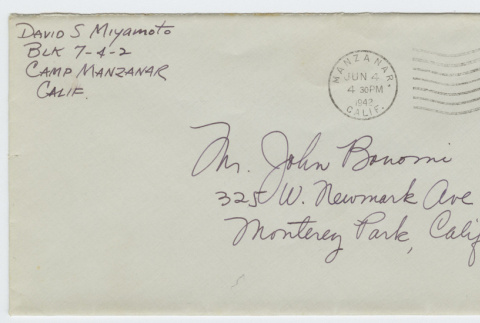 David S Miyamoto
Blk 7-4-2
Camp Manzanar
Calif.
MANZANAR.
JUN 4
4 30PM
1942
CALIF.
Mr. John Bonomi
325 W. Newmark Ave
Monterey Park, Calif